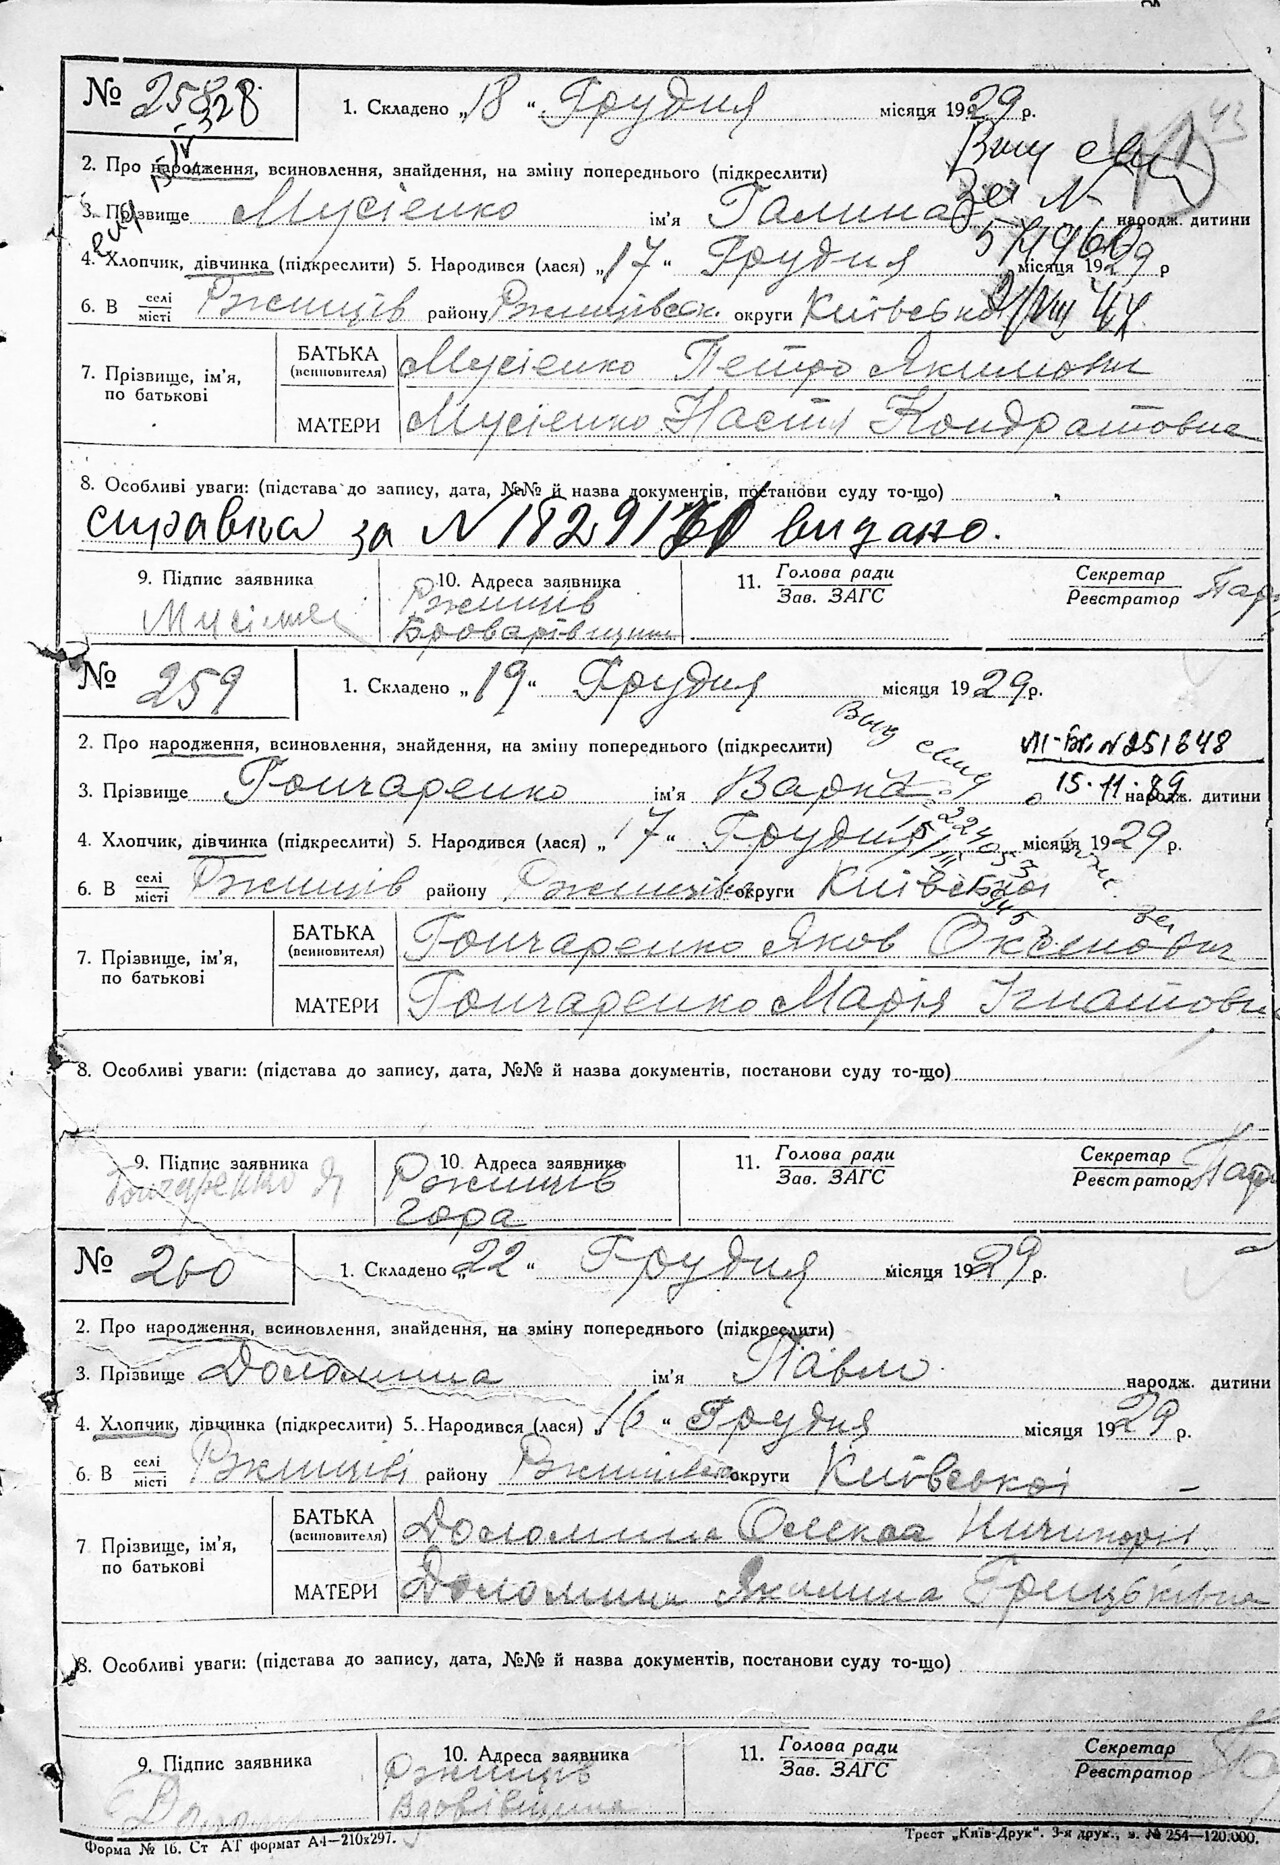 № 258
1. Складено „18“ Грудня місяця 1929 р.
2. Про народження, всиновлення, знайдення, на зміну попереднього (підкреслити)
Выд свид
за N
3. Прізвище Мусієнко ім'я Галина народж. дитини
4. Хлопчик, дівчинка (підкреслити) 5. Народився (лася) „17“ Грудня місяця 1929 р
6. В селі/місті Ржищів району Ржищівськ. округи Київсько
7. Прізвище, ім'я, по батькові
БАТЬКА (всиновителя) Мусієнко Петро Якимович
МАТЕРИ Мусієнко Настя Кондратовна
8. Особливі уваги: (підстава до запису, дата, №№ й назва документів, постанови суду то-що)
справка за N видано.
9. Підпис заявника 10. Адреса заявника 11. Голова ради / Зав. ЗАГС Секретар / Реєстратор
Ржищів
Броварівщина
№ 259
1. Складено „19“ Грудня місяця 1929 р.
2. Про народження, всиновлення, знайдення, на зміну попереднього (підкреслити)
Выд свид
N251648
15·11·89
3. Прізвище Гончаренко ім'я Варка народж. дитини
4. Хлопчик, дівчинка (підкреслити) 5. Народився (лася) „17“ Грудня місяця 1929 р.
6. В селі/місті Ржищів району округи Київської
7. Прізвище, ім'я, по батькові
БАТЬКА (всиновителя) Гончаренко Яков
МАТЕРИ Гончаренко Марія Ігнатовн
8. Особливі уваги: (підстава до запису, дата, №№ й назва документів, постанови суду то-що)
9. Підпис заявника 10. Адреса заявника 11. Голова ради / Зав. ЗАГС Секретар / Реєстратор
Гончаренко Я Ржищів
гора
№ 260
1. Складено „22“ Грудня місяця 1929 р.
2. Про народження, всиновлення, знайдення, на зміну попереднього (підкреслити)
3. Прізвище Доломина ім'я Павло народж. дитини
4. Хлопчик, дівчинка (підкреслити) 5. Народився (лася) „16“ Грудня місяця 1929 р.
6. В селі/місті Ржищіві району округи Київської
7 Прізвище, ім'я, по батькові
БАТЬКА (всиновителя) Доломина Олекса
МАТЕРИ Доломина Якилина Грицьківна
8. Особливі уваги: (підстава до запису, дата, №№ й назва документів, постанови суду то-що)
9. Підпис заявника 10. Адреса заявника 11. Голова ради / Зав. ЗАГС Секретар / Реєстратор
Ржищів
Вдовівщина
Форма № 16. Ст АТ формат А4—210х297. Трест „Київ-Друк“. 3-я друк., з. № 254—120.000.